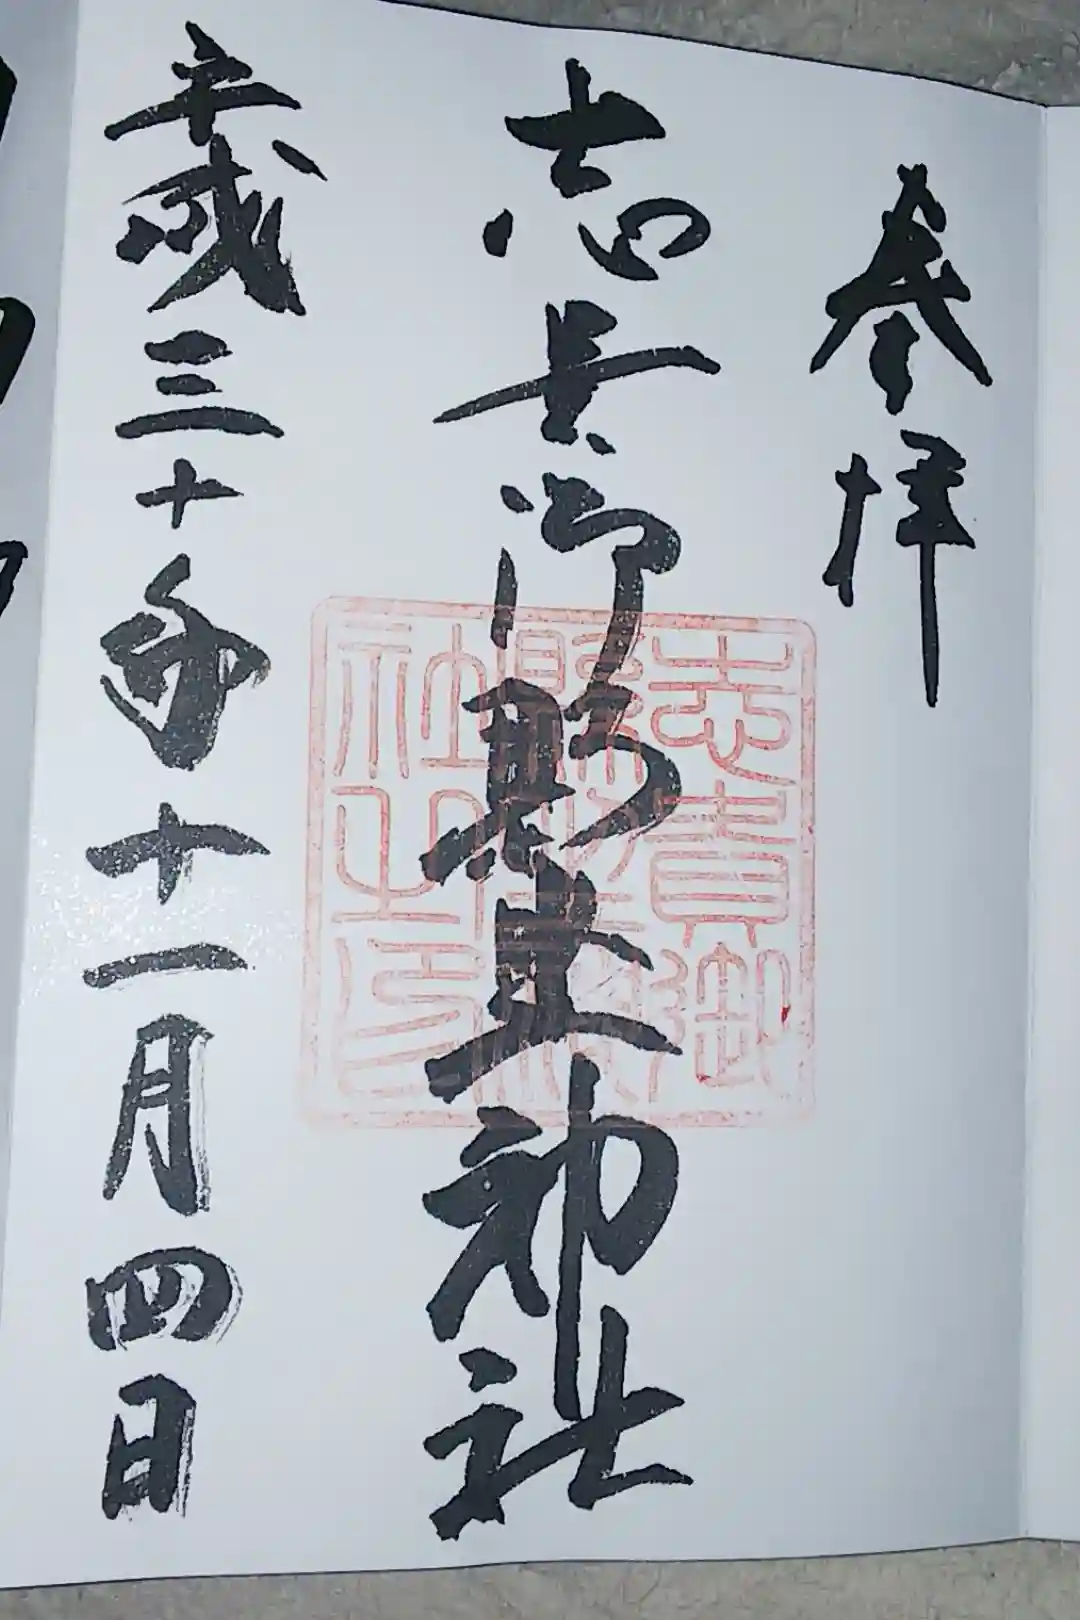 参拝
志貴御縣坐神社
平成三十年十一月四日
志貴御
縣坐神
社之印